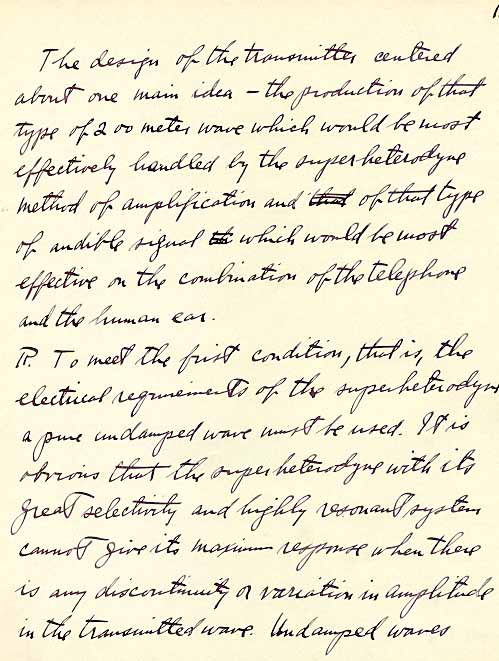 The design of the transmitter centered
about one main idea – the production of that
type of 200 meter wave which would be most
effectively handled by the superheterodyne
method of amplification and that of that type
of audible signal th which would be most
effective on the combination of the telephone
and the human ear.
P. To meet the first condition, that is, the
electrical requirements of the superheterodyne
a pure undamped wave must be used. It is
obvious that the superheterodyne with its
great selectivity and highly resonant system
cannot give its maximum response when there
is any discontinuity or variation in amplitude
in the transmitted wave. Undamped waves